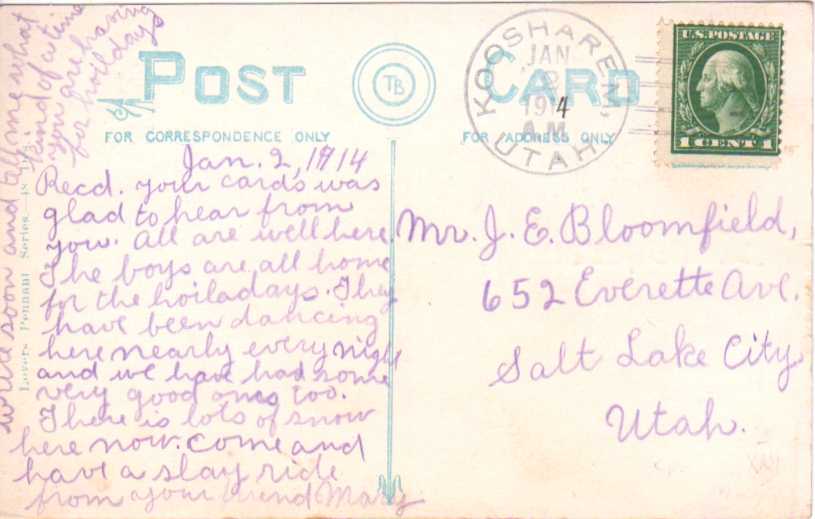 POST CARD
TB
FOR CORRESPONDENCE ONLY
FOR ADDRESS ONLY
KOOSHAREM,
UTAH
JAN
2
1914
A.M.
U.S. POSTAGE
1 CENT 1
Jan. 2, 1914
Recd. your cards was
glad to hear from
you. All are well here.
The boys are all home
for the hoiladays. They
have been dancing
here nearly every night
and we have had some
very good ones too.
There is lots of snow
here now. Come and
have a slay ride
from your friend Mary
write soon and tell me what
kind of a time
you are having
for hoildays
Lovers Pennant Series.
Mr. J. E. Bloomfield,
652 Everette Ave.
Salt Lake City
Utah.